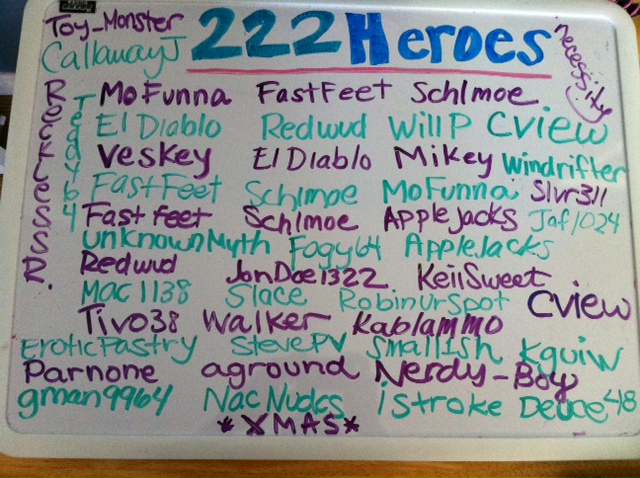 Toy_Monster
222 Heroes
CallawayJ
necessity
MoFunna FastFeet Schlmoe
El Diablo Redwud WillP Cview
Veskey El Diablo Mikey Windrifter
FastFeet Schlmoe MoFunna Slvr311
Fast feet Schlmoe AppleJacks Jaf1024
UnknownMyth Fogy64 AppleJacks
Redwud JonDoe1322 KeiiSweet
Mac1138 Slace RobinUrSpot Cview
Tivo38 Walker Kablammo
EroticPastry StevePV Smallish Kguiw
Parnone aground Nerdy-Boy
gman9964 NacNudcs iStroke Deuce48
*XMAS*
Teddy64